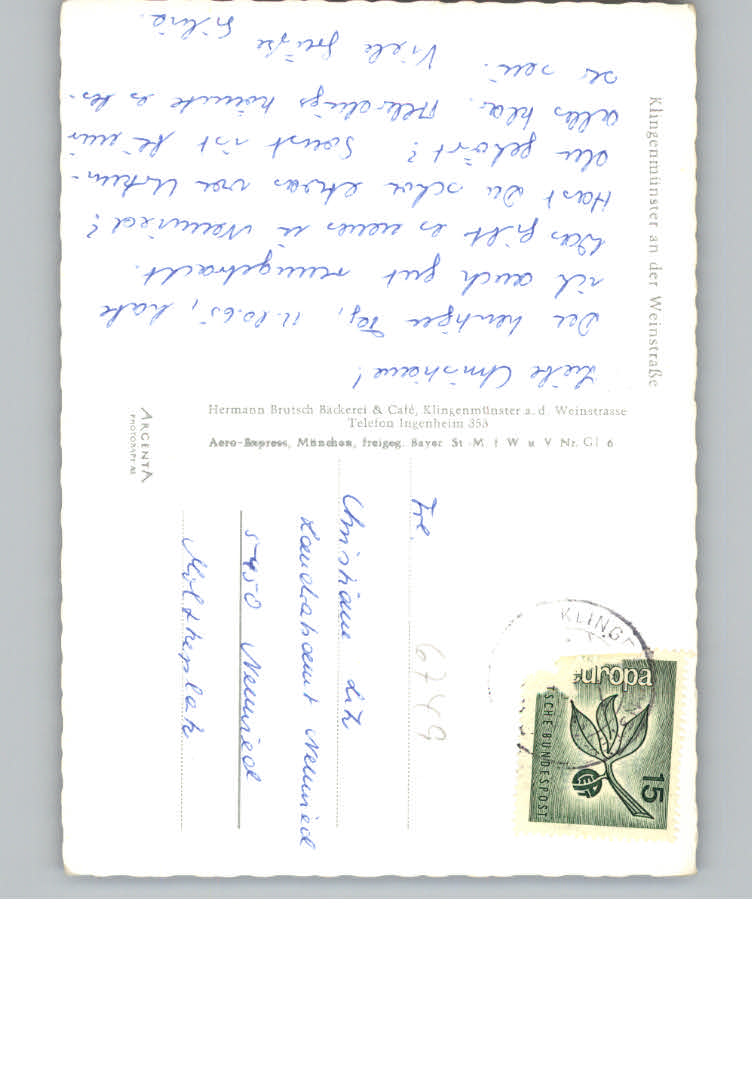 Klingenmünster an der Weinstraße
Liebe Christiane!
Den heutigen Tag, 11.10.65, habe
ich auch gut rumgebracht.
Was gibt es neues in Neuwied?
Hast Du schon etwas von
gehört? Sonst ist bei mir
alles klar. Allerdings könnte es bes-
ser sein. Viele Grüße
Silvia.
Hermann Brutsch Bäckerei & Café, Klingenmünster a. d. Weinstrasse
Telefon Ingenheim 353
Aero-Express, München, freigeg. Bayer St M f W u V Nr. G1 6
ARGENTA
PHOTOKARTE
Frl.
Christiane
Landratsamt Neuwied
5450 Neuwied
6749
KLINGE
europa
TSCHE BUNDESPOST
15